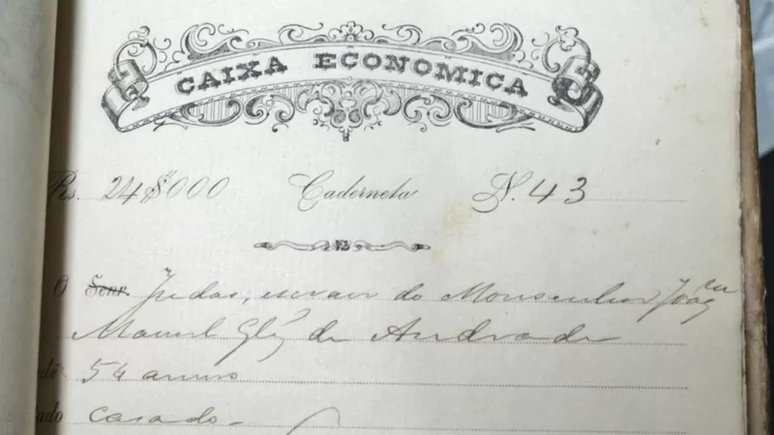 CAIXA ECONOMICA
Rs. 24$000 Caderneta N. 43
O Senr. Judas, escravo do Monsenhor Joaqm
Manuel Glz de Andrade
de 54 annos
ado casado